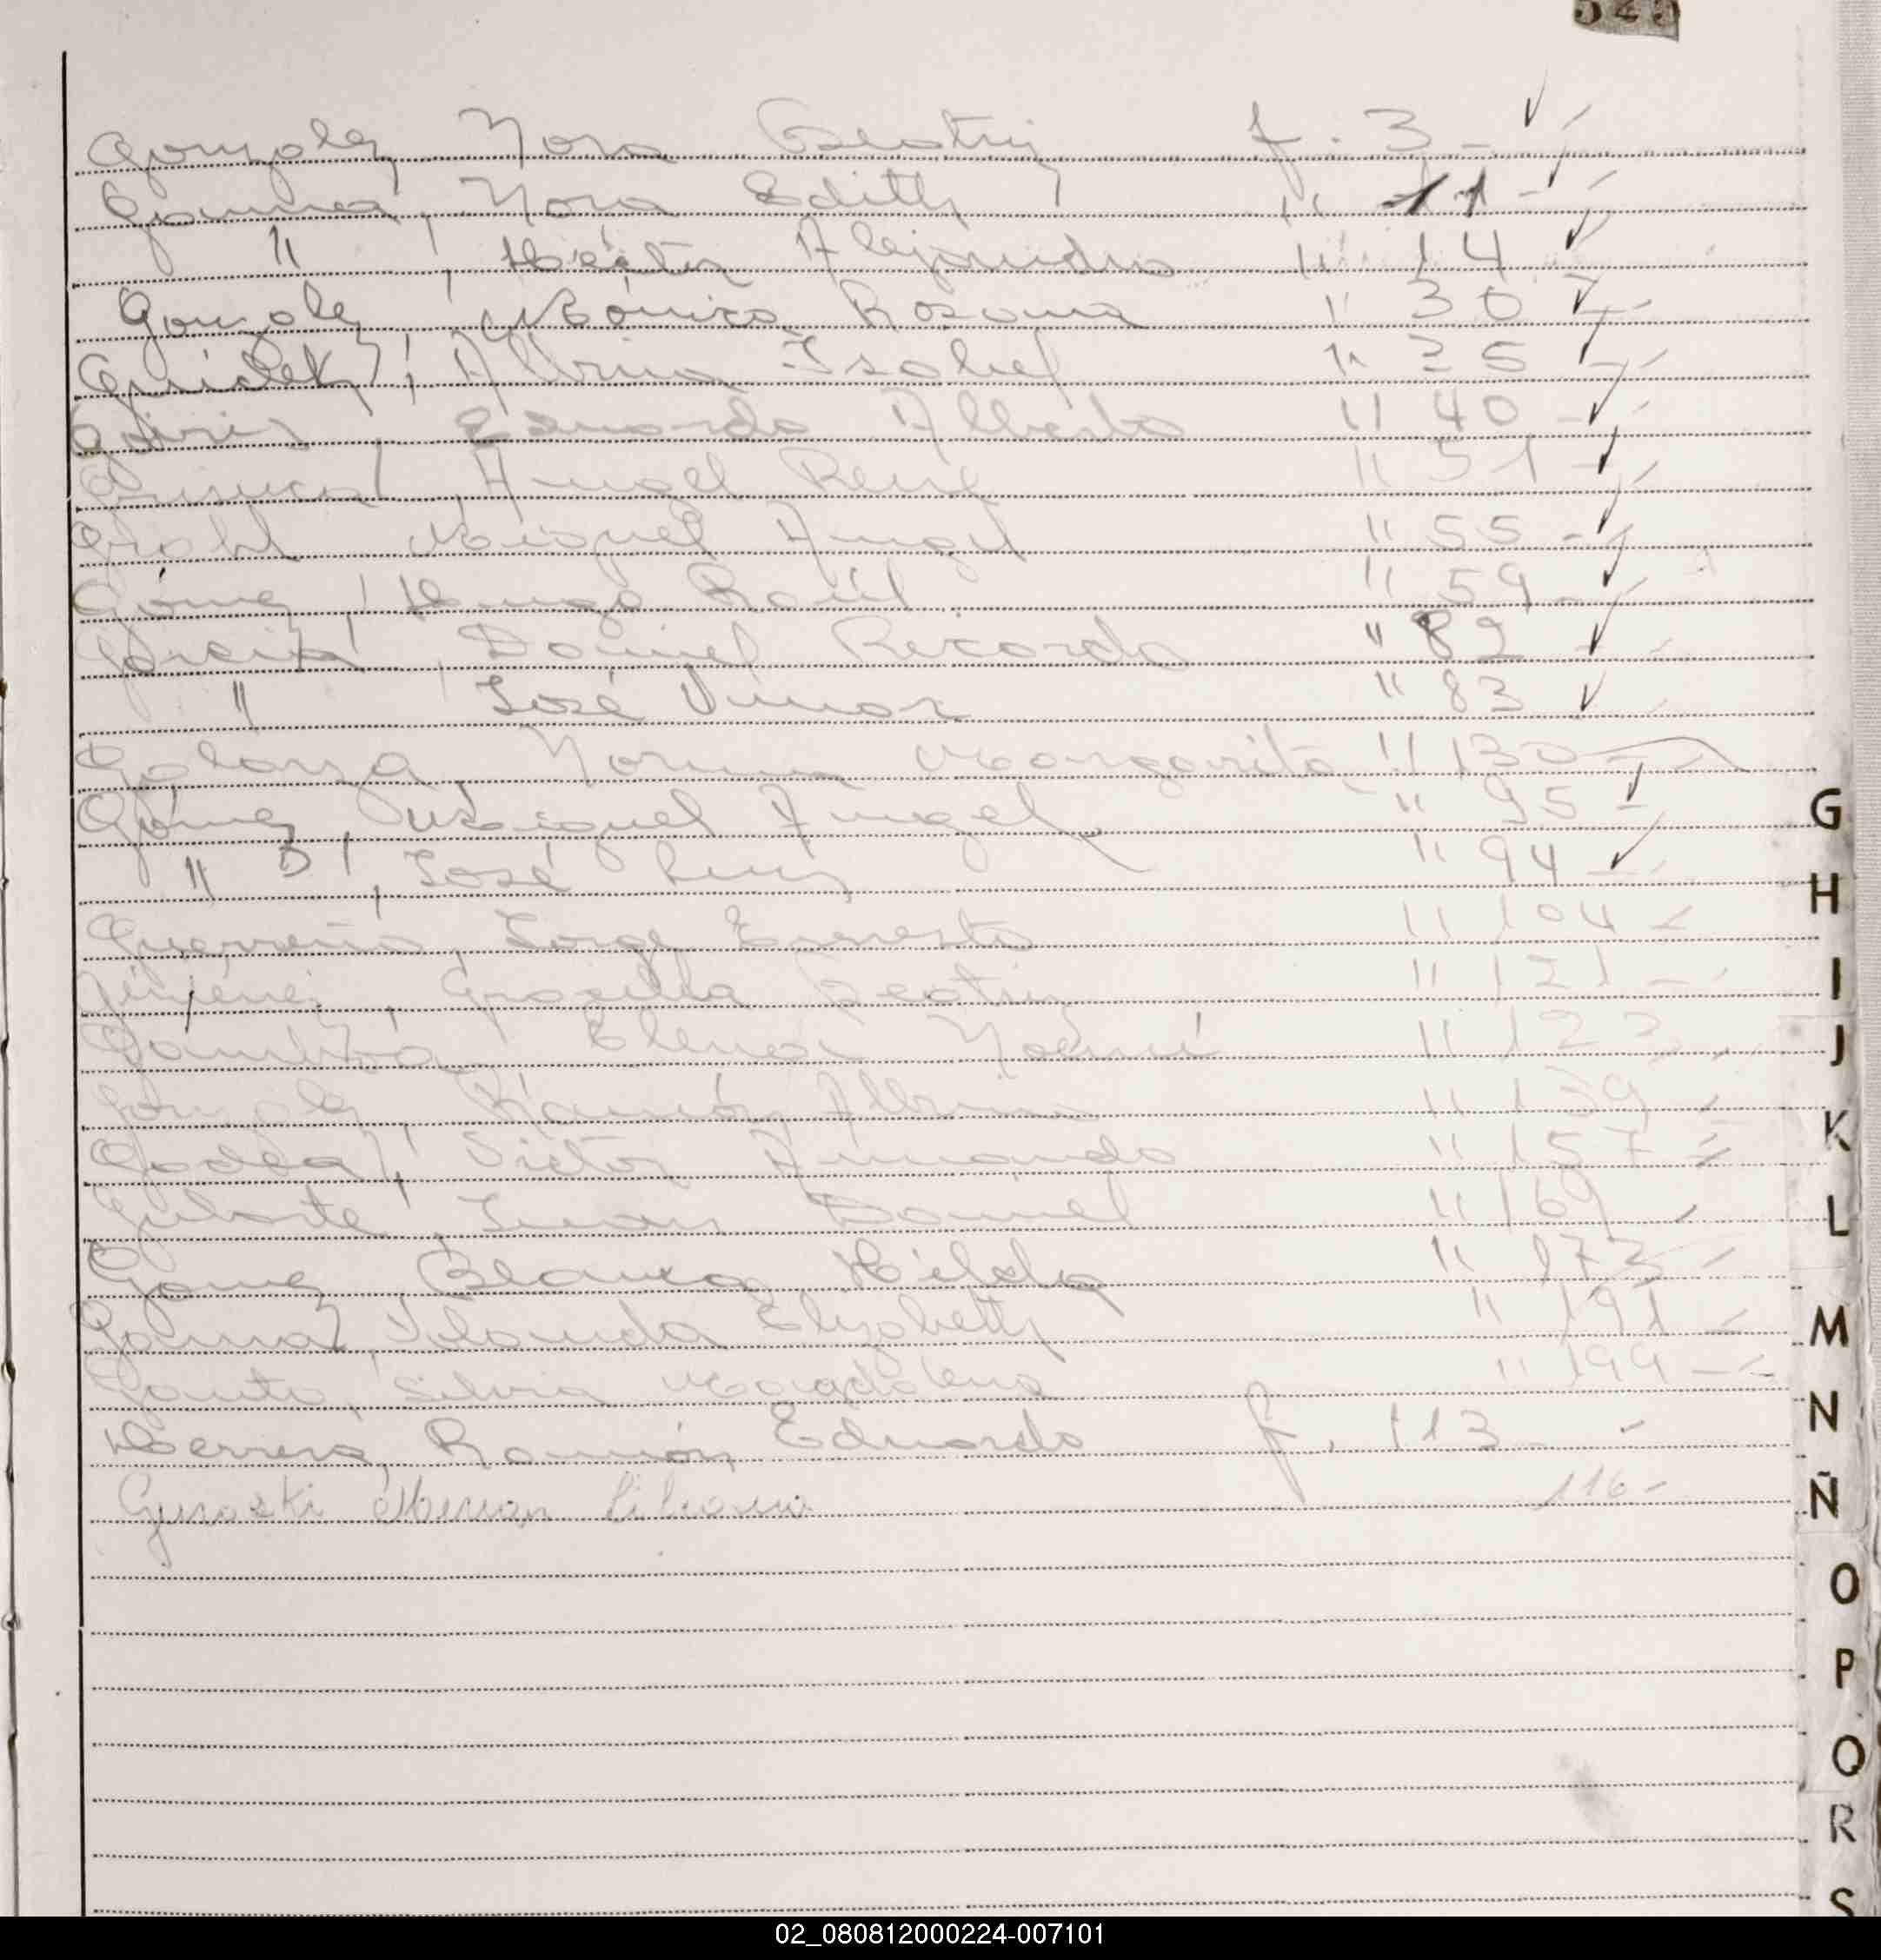 525
Gonzalez, Nora Beatriz f. 3-
Gamma, Nora Edith " 11-
" , Héctor Alejandro " 14
Gonzalez, Mónica Rosana " 30
Albina Isabel " 35
Eduardo Alberto " 40-
Angel René " 51-
Grahl Miguel Angel " 55-
Gómez, Hugo Raúl " 59-
García, Daniel Ricardo " 82-
" José Omar " 83
Galarza, Norma Margarita " 130
Gómez, Miguel Angel " 95-
" , José Luis " 94-
Guerreño, Jorge Ernesto " 104-
Graciela Beatriz " 121-
Elena Noemí " 123
Gonzalez, Ramón Albino " 139-
Godoy, Victor Armando " 157
Juan Daniel " 169
Gomez Blanca Hilda " 173
Yolanda Elizabeth " 191-
Silvia Magdalena " 199-
Herrera, Ramón Eduardo f. 113-
Liliana 116-
G
H
I
J
K
L
M
N
Ñ
O
P
Q
R
S
02_080812000224-007101